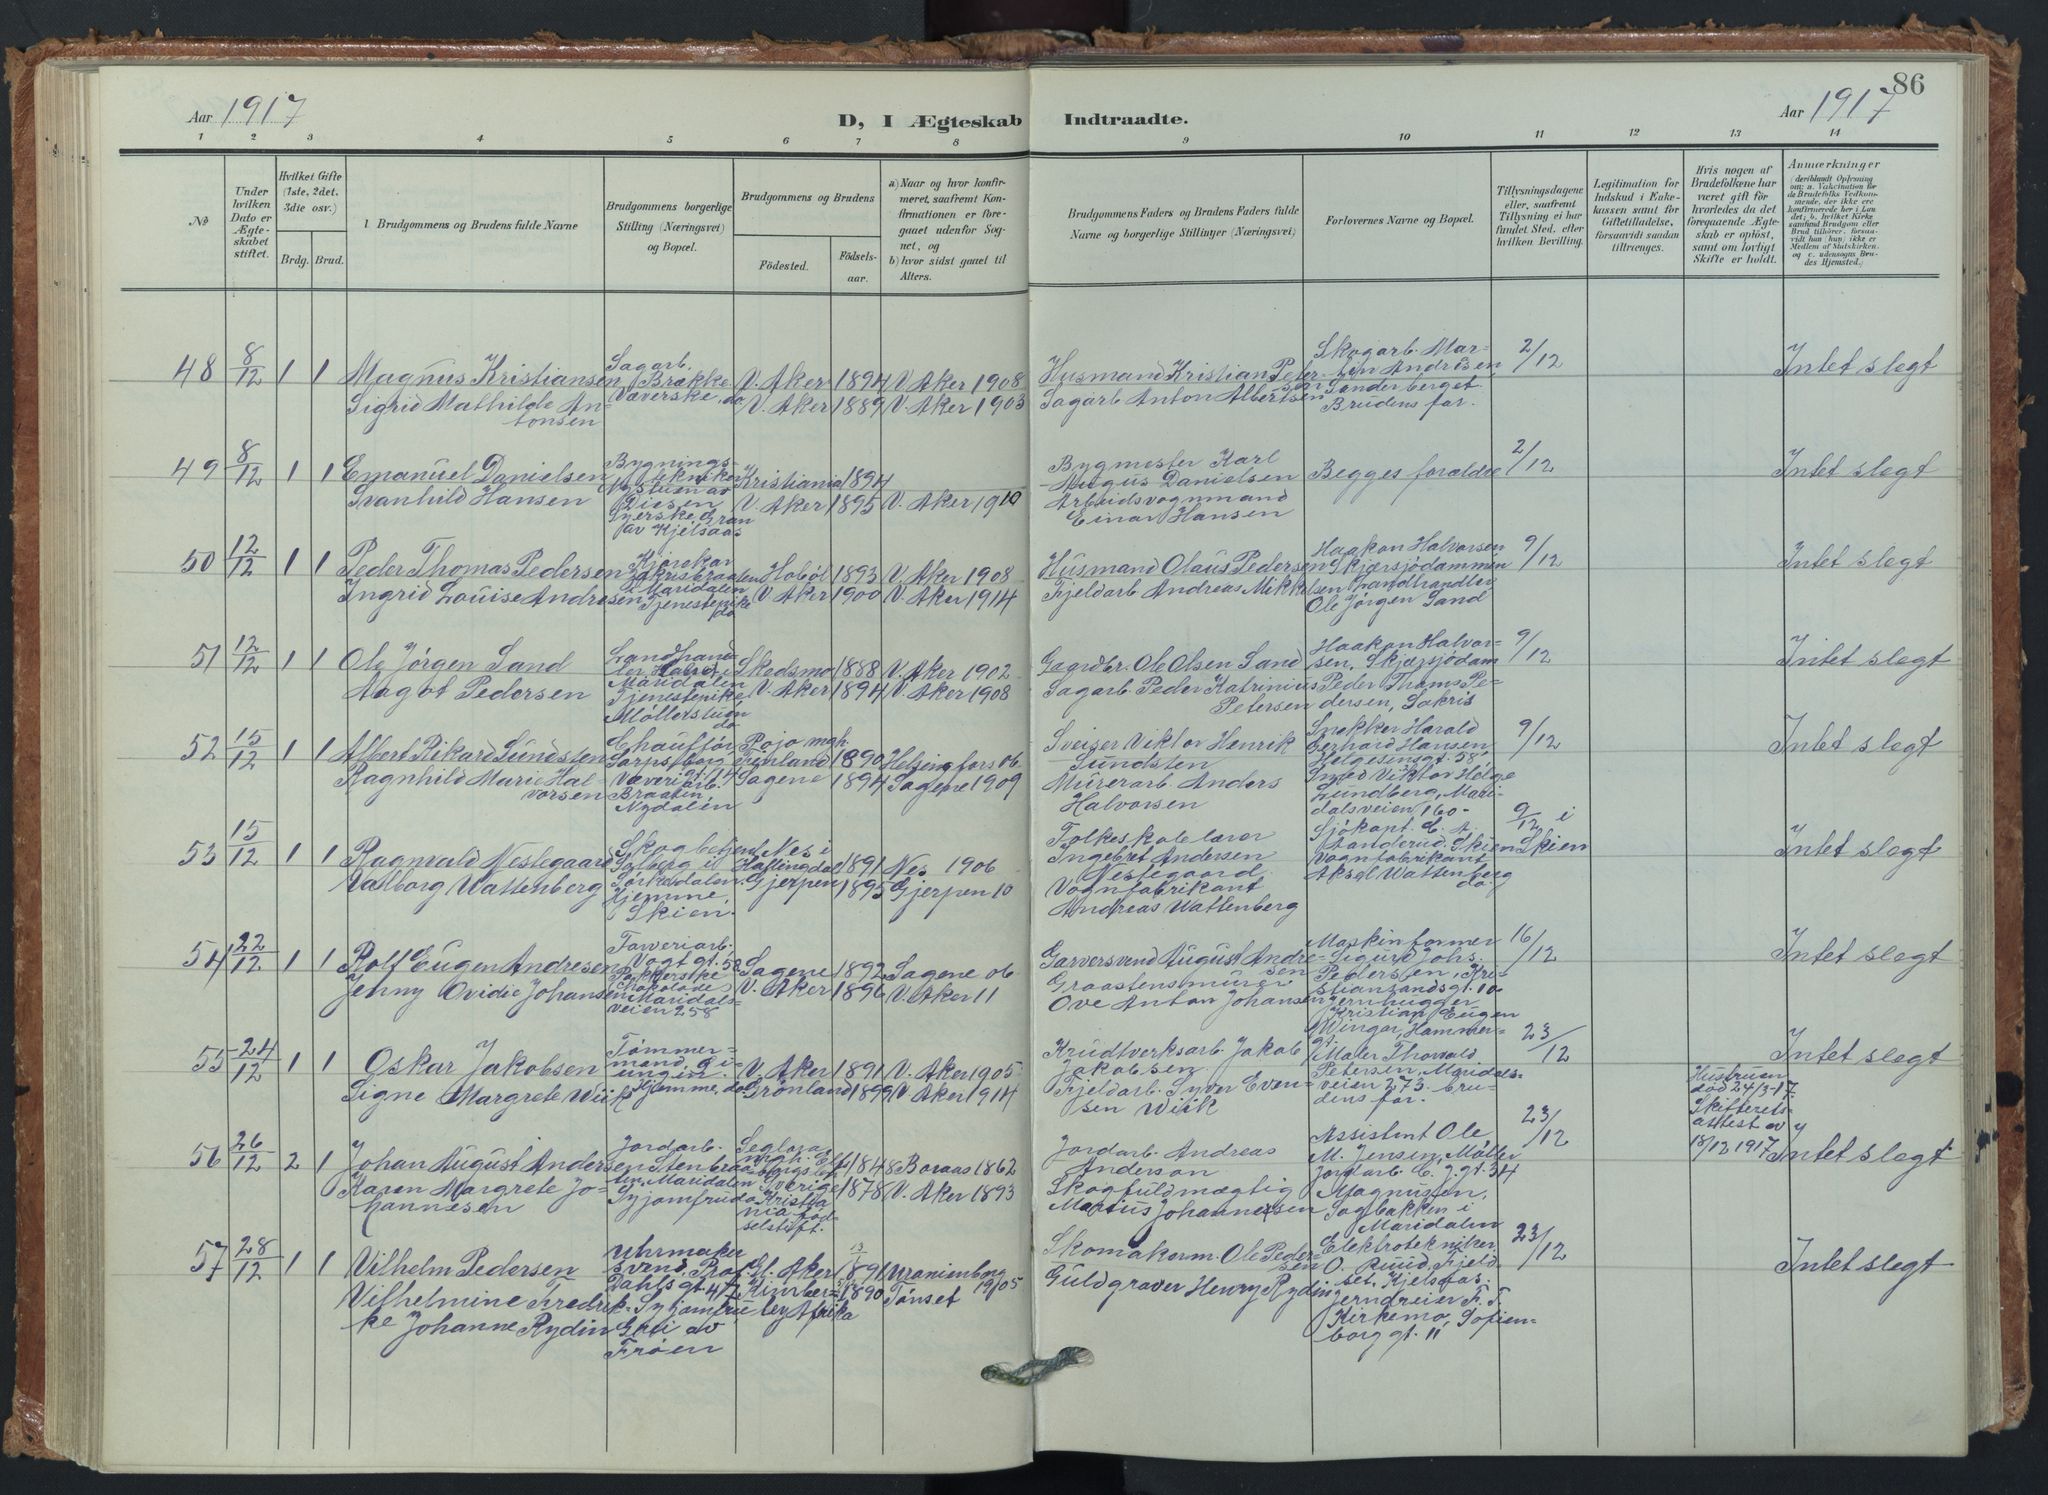 86
Aar 1917 D, I Ægteskab Indtraadte. Aar 1917
1 2 3 4 5 6 7 8 9 10 11 12 13 14
No
Under hvilken Dato er Ægteskabet stiftet.
Hvilket Gifte (1ste, 2det, 3die osv.)
Brdg. Brud.
Brudgommens og Brudens fulde Navne
Brudgommens borgerlige Stilling (Næringsvei) og Bopæl.
Brudgommens og Brudens
Fødested. Fødselsaar.
a) Naar og hvor konfirmeret, saafremt Konfirmationen er foregaaet udenfor Sognet, og
b) hvor sidst gaaet til Alters.
Brudgommens Faders og Brudens Faders fulde Navne og borgerlige Stillinger (Næringsvei)
Forlovernes Navne og Bopæl.
Tillysningsdagene eller, saafremt Tillysning ei har fundet Sted, efter hvilken Bevilling.
Legitimation for Indskud i Enkekassen samt for Giftetilladelse, forsaavidt saadan tiltrænges.
Hvis nogen af Brudefolkene har været gift før hvorledes da det foregaaende Ægteskab er opløst, samt om lovligt Skifte er holdt.
Anmærkninger
48 8/12 1 1 Magnus Kristiansen Sagarb. Brække V. Aker 1894 V. Aker 1908 Husmand Kristian Petersen Skogarb. Martin Andresen Sanderberget 2/12 Intet slegt
Sigrid Mathilde Antonsen Væverske, do V. Aker 1889 V. Aker 1903 Sagarb Anton Albertsen Brudens far.
49 8/12 1 1 Emanuel Danielsen Bygningstekniker Nystuen av Diesen Kristiania 1894 Bygmester Karl August Danielsen Begges forældre 2/12 Intet slegt
Svanhild Hansen Syerske Gran av Kjelsaas V. Aker 1895 V. Aker 1910 Arbeidsvognmand Einar Hansen
50 12/12 1 1 Peder Thomas Pedersen Kjørekar Sakrisbraaten Maridalen Hobøl 1893 V. Aker 1908 Husmand Olaus Pedersen Haakon Halvorsen Skjærsjødammen 9/12 Intet slegt
Ingrid Louise Andresen Tjenestepike do V. Aker 1900 V. Aker 1914 Fjeldarb Andreas Mikkelsen Landhandler Ole Jørgen Sand
51 12/12 1 1 Ole Jørgen Sand Landhandler, Maridalen Skedsmo 1888 V. Aker 1902 Gaardbr. Ole Olsen Sand Haakon Halvorsen, Skjærsjödam 9/12 Intet slegt
Aagot Pedersen Tjenestepike Møllerstuen do V. Aker 1894 V. Aker 1908 Sagarb. Peder Katrinius Petersen Peder Thoms Pedersen, Sakris
52 15/12 1 1 Albert Rikard Sundsten Chauffør, Sarpsborg gt. 14 Pojo mgh Finland 1890 Helsingfors 06 Sveiser Viktor Henrik Sundsten Snekker Harald Gerhard Hansen, Helgesensgt. 58 9/12 Intet slegt
Ragnhild Marie Halvorsen Væveriarb. Braaten, Nydalen Sagene 1894 Sagene 1909 Murerarb. Anders Halvorsen Smed Viktor Helge Lundberg, Maridalsveien 160
53 15/12 1 1 Ragnvald Nestegaard Skogbetjent Sørkedalen Nes i Hallingdal 1891 Nes 1906 Folkeskolelærer Ingebret Andersen Nestegaard Sjökapt. C. A. Skien 9/12 i Skien Intet slegt
Valborg Wattenberg Hjemme, Skien. Gjerpen 1895 Gjerpen 10 Vognfabrikant Andreas Wattenberg Vognfabrikant Aksel Wattenberg do.
54 22/12 1 1 Rolf Eugen Andresen Farveriarb. Vogt gt. 58 Sagene 1892 Sagene 06 Garversvend August Andresen Maskinformer Sigurd Johs. Pedersen, Kristiansandsgt. 10 16/12 Intet slegt
Jenny Ovidie Johansen Pakkerske Chokolade Maridalsveien 258 V. Aker 1896 V. Aker 11 Graastensmurer Ove Anton Johansen Jernhugger Kristian Eugen Winger, Hammergt.
55 24/12 1 1 Oskar Jakobsen Tømmermand V. Aker 1891 V. Aker 1905 Krudtverksarb. Jakob Jakobsen Maler Thorvald Petersen, Maridalsveien 273. 23/12 Intet slegt
Signe Margrete Wiik Hjemme, do Grønland 1899 V. Aker 1914 Fjeldarb. Syver Evensen Wiik brudens far.
56 26/12 2 1 Johan August Anderson Jordarb. Stenbraaten, Maridalen Seglora mgh. Elfsborgs Sverige 1848 Boraas 1862 Jordarb Andreas Anderson Assistent Ole M. Jensen, Møller gt. 34 23/12 Hustruen död 24/3-17. Skifteretsattest av 18/12 1917 Intet slegt
Karen Margrete Johannesen Syjomfru do Kristiania fødselsstift. 1878 V. Aker 1893 Skogfuldmægtig Marius Johannesen Jordarb. C. J. Magnusson, Sagbakken i Maridalen
57 28/12 1 1 Vilhelm Pedersen Uhrmakersvend, Prof. Dahls gt 47 Gl. Aker 1891 Uranienborg 1905 Skomakerm. Ole Pedersen Elektrotekniker O. Ruud, Fjeldset, Kjelsaas. 23/12 Intet slegt
Vilhelmine Fredrikke Johanne Rydin Syjomfru Frøen Kimberley Afrika 1890 Tønset Guldgraver Henry Rydin Jerndreier F. F. Kirkemo, Sofienborg gt. 11